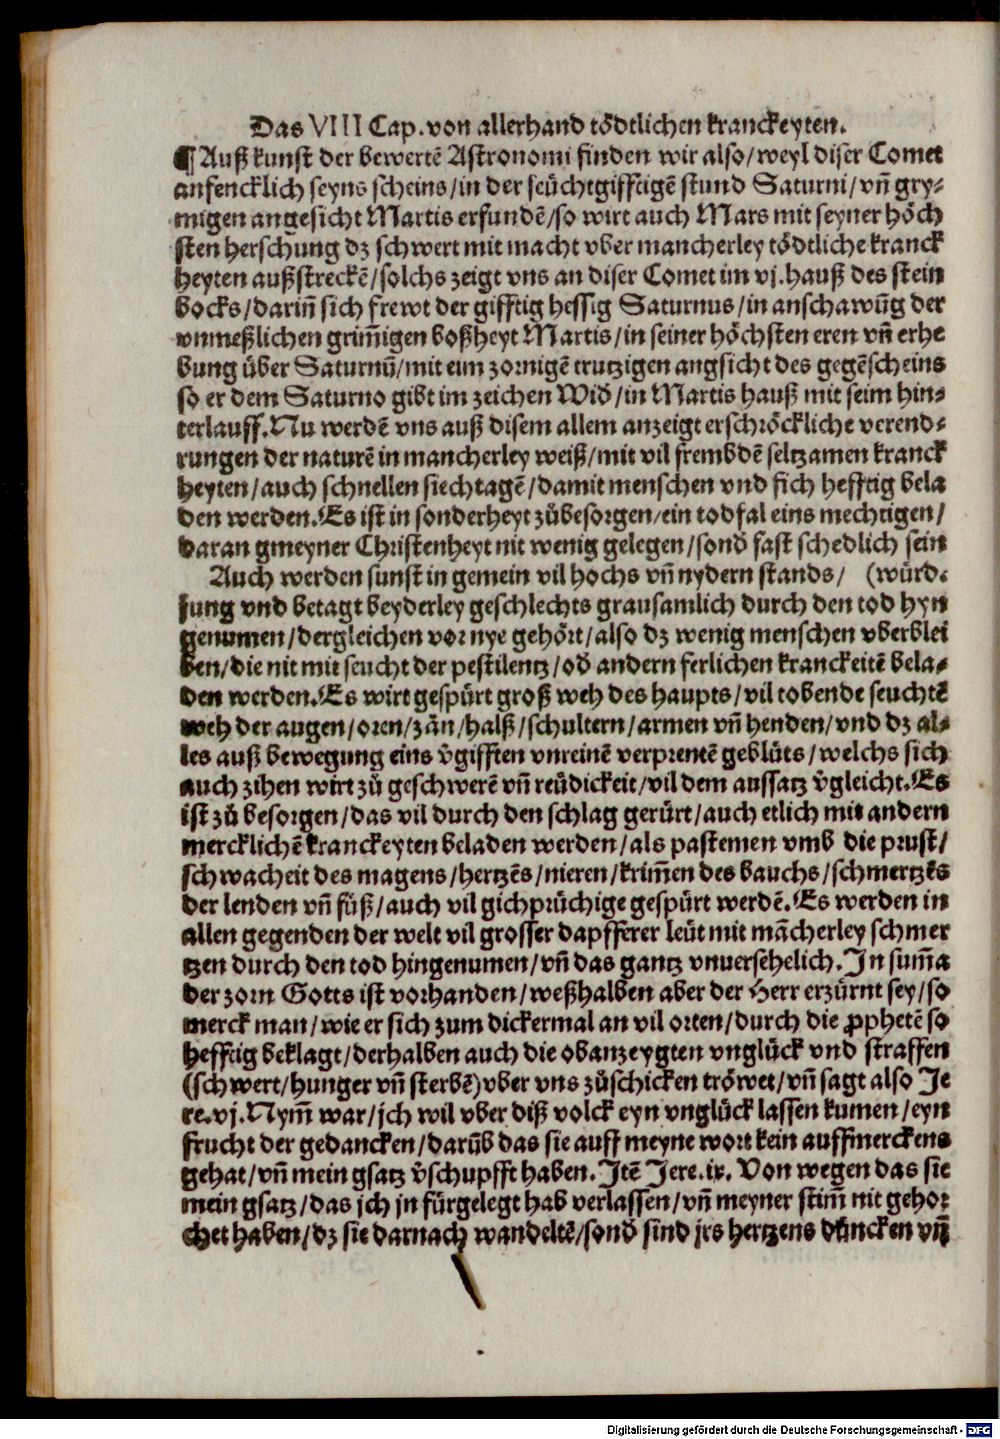 Das VIII Cap. von allerhand tödtlichen kranckeyten.
¶ Auß kunst der bewertē Astronomi finden wir also/weyl diser Comet
anfencklich seyns scheins/in der seüchtgifftigē stund Saturni/vñ gry-
migen angesicht Martis erfundē/so wirt auch Mars mit seyner höch
sten herschung dz schwert mit macht vber mancherley tödtliche kranck
heyten außstreckē/solchs zeigt vns an diser Comet im vj. hauß des stein
bocks/dariñ sich frewt der gifftig hessig Saturnus/in anschawūg der
vnmeßlichen grim̄igen boßheyt Martis/in seiner höchsten eren vñ erhe
bung über Saturnū/mit eim zornigē trutzigen angsicht des gegēscheins
so er dem Saturno gibt im zeichen Wid̄/in Martis hauß mit seim hin-
terlauff. Nu werdē vns auß disem allem anzeigt erschröckliche verend-
rungen der naturē in mancherley weiß/mit vil frembdē seltzamen kranck
heyten/auch schnellen siechtagē/damit menschen vnd fich hefftig bela
den werden. Es ist in sonderheyt zůbesorgen/ein todfal eins mechtigen/
daran gmeyner Christenheyt nit wenig gelegen/sond̄ fast schedlich sein
Auch werden sunst in gemein vil hochs vñ nydern stands/ (würd.
jung vnd betagt beyderley geschlechts grausamlich durch den tod hyn
genumen/dergleichen vor nye gehört/also dz wenig menschen vberblei
ben/die nit mit seucht der pestilentz/od̄ andern ferlichen kranckeitē bela-
den werden. Es wirt gespürt groß weh des haupts/vil tobende seuchtē
weh der augen/oren/zän/halß/schultern/armen vñ henden/vnd dz al-
les auß bewegung eins v̄gifften vnreinē verprentē geblüts/welchs sich
auch zihen wirt zů geschwerē vñ reüdickeit/vil dem aussatz v̄gleicht. Es
ist zů besorgen/das vil durch den schlag gerürt/auch etlich mit andern
mercklichē kranckeyten beladen werden/als pastemen vmb die prust/
schwacheit des magens/hertzēs/nieren/krim̄en des bauchs/schmertzēs
der lenden vñ füß/auch vil gichprüchige gespürt werdē. Es werden in
allen gegenden der welt vil grosser dapfferer leüt mit mācherley schmer
tzen durch den tod hingenumen/vñ das gantz vnuersehelich. In sum̄a
der zorn Gotts ist vorhanden/weßhalben aber der Herr erzürnt sey/so
merck man/wie er sich zum dickermal an vil orten/durch die ꝓphetē so
hefftig beklagt/derhalben auch die obanzeygten vnglück vnd straffen
(schwert/hunger vñ sterbē) vber vns zůschicken tröwet/vñ sagt also Je
re. vj. Nym̄ war/jch wil vber diß volck eyn vnglück lassen kumen/eyn
frucht der gedancken/darūb das sie auff meyne wort kein auffmerckens
gehat/vñ mein gsatz v̄schupfft haben. Itē Jere. ix. Von wegen das sie
mein gsatz/das jch jn fürgelegt hab verlassen/vñ meyner stim̄ nit gehor
chet haben/dz sie darnach wandeltē/sond̄ sind jrs hertzens düncken vñ
Digitalisierung gefördert durch die Deutsche Forschungsgemeinschaft - DFG